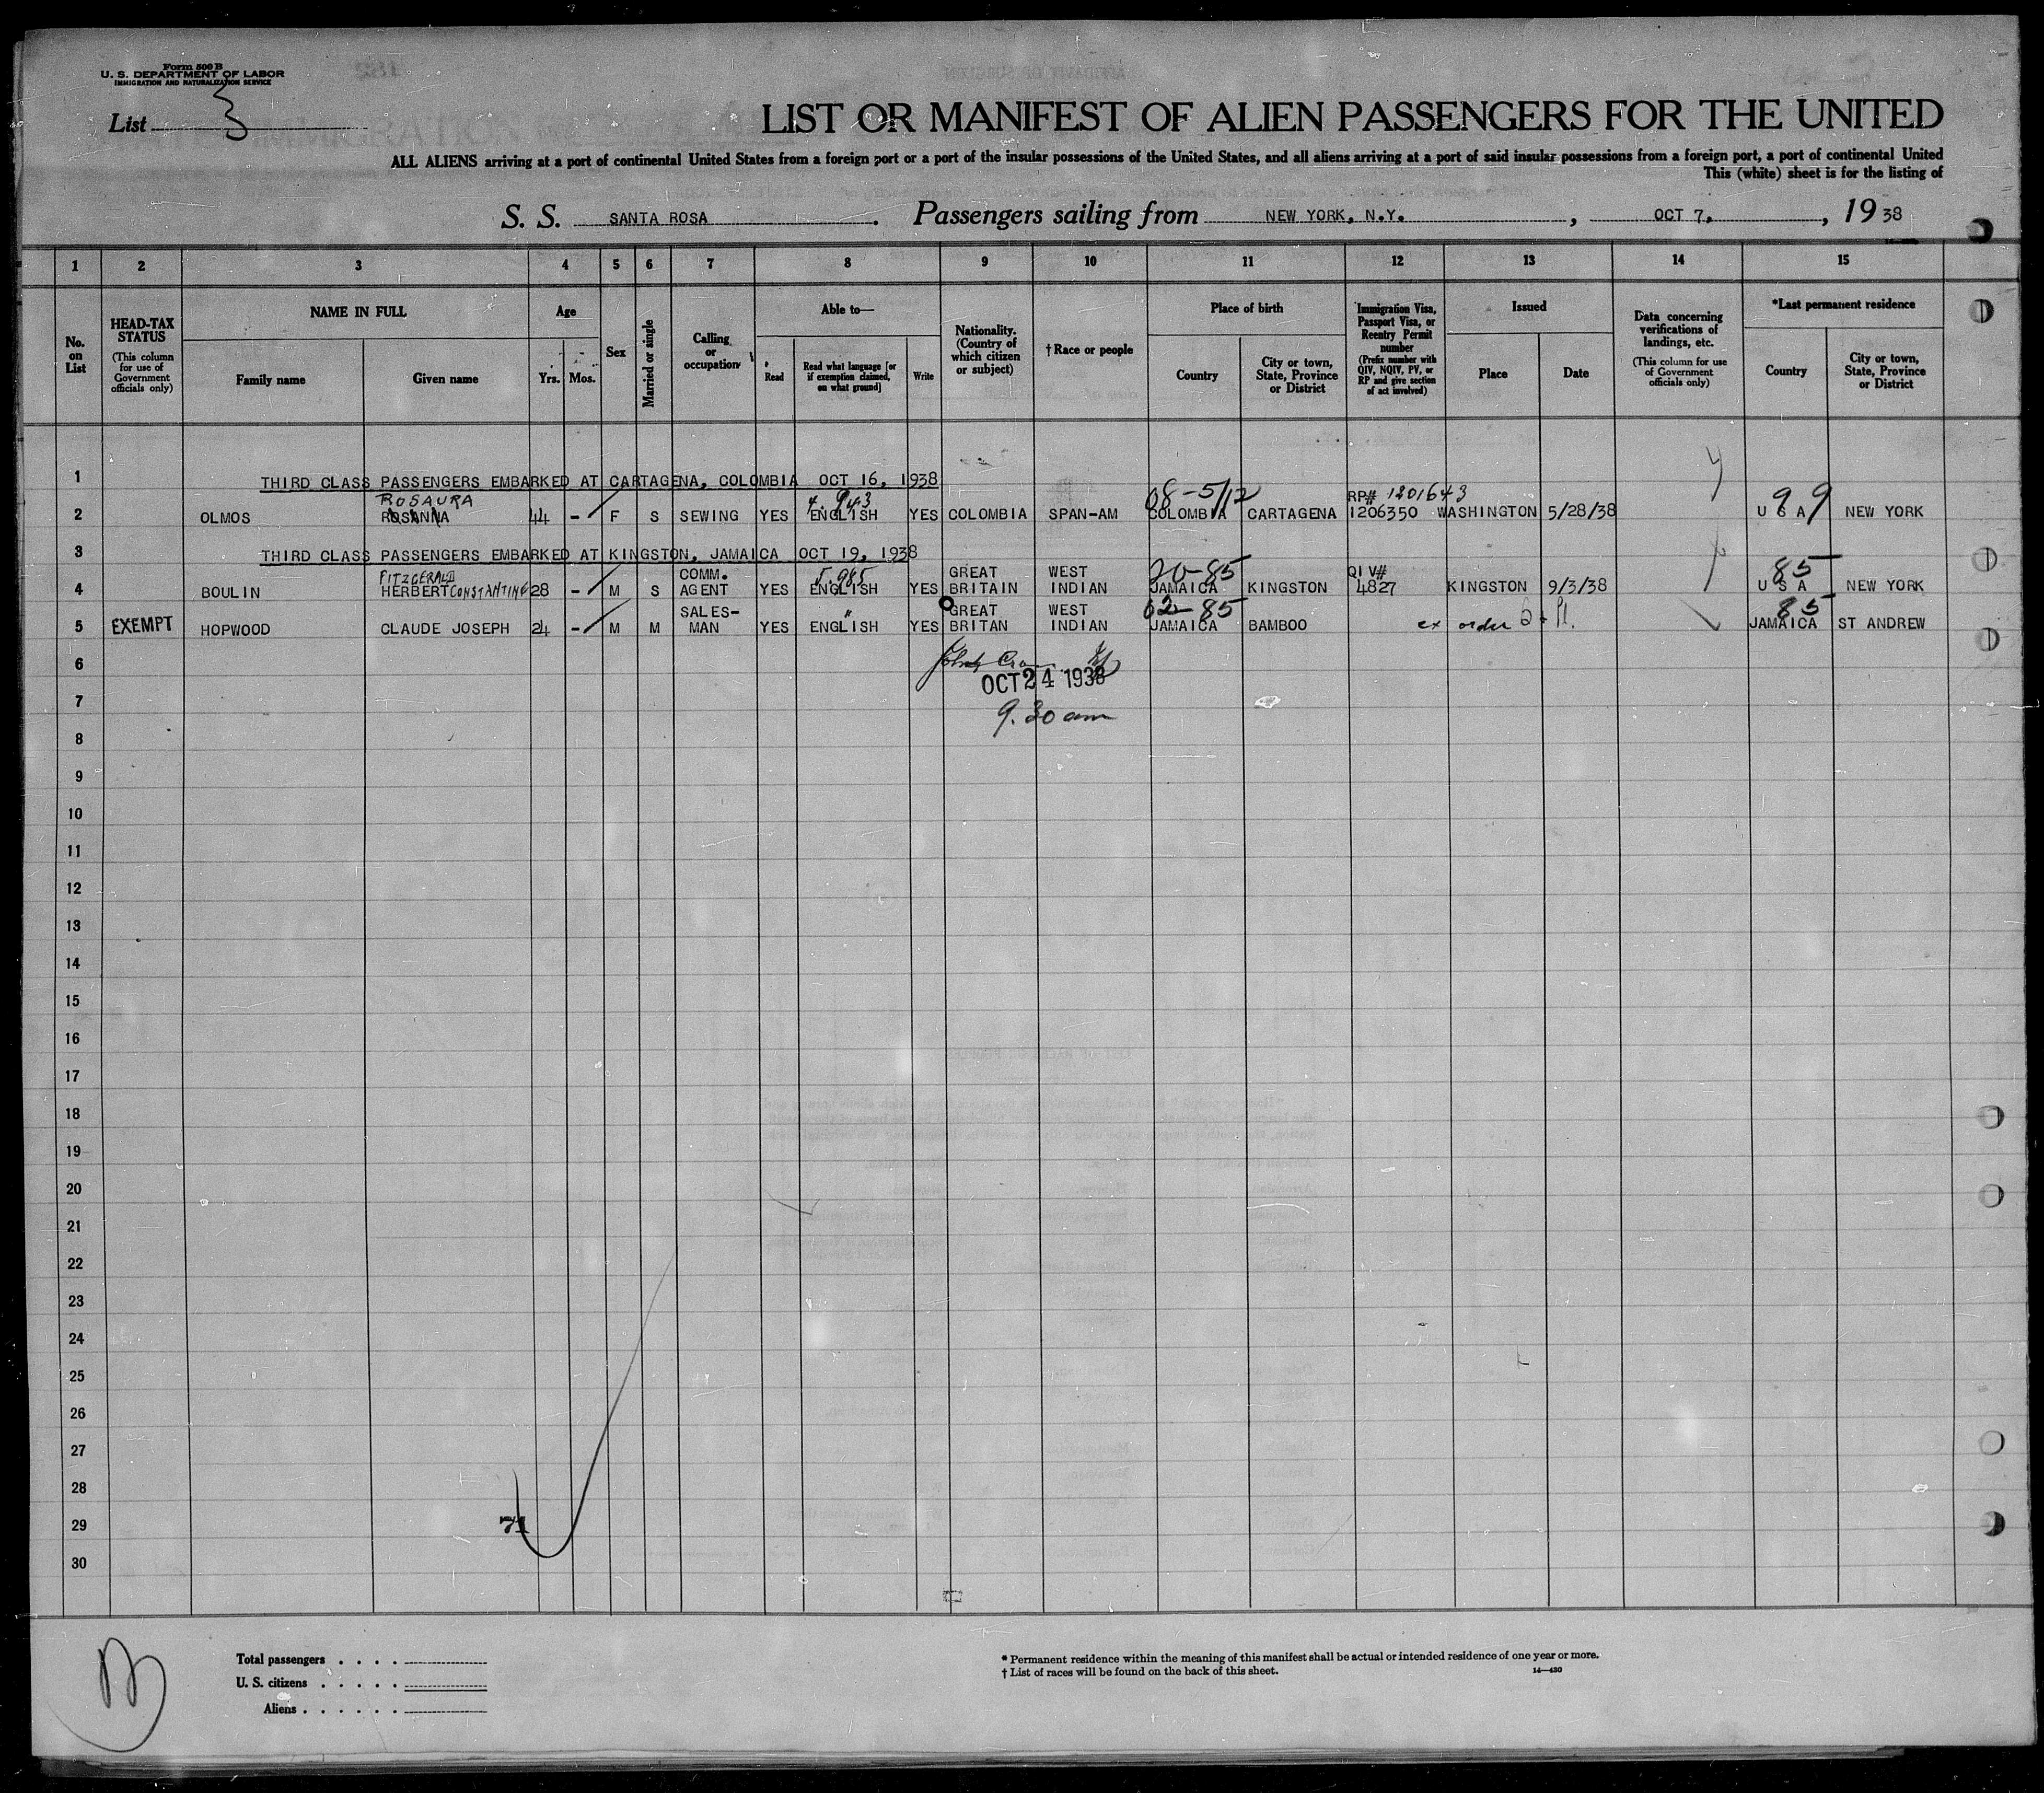 Form 500 B
U. S. DEPARTMENT OF LABOR
IMMIGRATION AND NATURALIZATION SERVICE
List 3
LIST OR MANIFEST OF ALIEN PASSENGERS FOR THE UNITED
ALL ALIENS arriving at a port of continental United States from a foreign port or a port of the insular possessions of the United States, and all aliens arriving at a port of said insular possessions from a foreign port, a port of continental United
This (white) sheet is for the listing of
S. S. SANTA ROSA. Passengers sailing from NEW YORK, N.Y., OCT 7, 1938
1 2 3 4 5 6 7 8 9 10 11 12 13 14 15
No. on List
HEAD-TAX STATUS (This column for use of Government officials only)
NAME IN FULL
Family name
Given name
Age
Yrs.
Mos.
Sex
Married or single
Calling or occupation
Able to—
Read
Read what language [or if exemption claimed, on what ground]
Write
Nationality. (Country of which citizen or subject)
†Race or people
Place of birth
Country
City or town, State, Province or District
Immigration Visa, Passport Visa, or Reentry Permit number (Prefix number with QIV, NQIV, PV, or RP and give section of act involved)
Issued
Place
Date
Data concerning verifications of landings, etc. (This column for use of Government officials only)
*Last permanent residence
Country
City or town, State, Province or District
1 THIRD CLASS PASSENGERS EMBARKED AT CARTAGENA, COLOMBIA OCT 16, 1938
ROSAURA 4.943 08-5/12 RP# 1201643 99
2 OLMOS ROSANNA 44 - F S SEWING YES ENGLISH YES COLOMBIA SPAN-AM COLOMBIA CARTAGENA 1206350 WASHINGTON 5/28/38 U S A NEW YORK
3 THIRD CLASS PASSENGERS EMBARKED AT KINGSTON, JAMAICA OCT 19, 1938
FITZGERALD COMM. 5.985 GREAT WEST 20-85 QIV# 85
4 BOULIN HERBERT CONSTANTINE 28 - M S AGENT YES ENGLISH YES BRITAIN INDIAN JAMAICA KINGSTON 4827 KINGSTON 9/3/38 U S A NEW YORK
SALES- " GREAT WEST 02-85 85
5 EXEMPT HOPWOOD CLAUDE JOSEPH 24 - M M MAN YES ENGLISH YES BRITAN INDIAN JAMAICA BAMBOO ex order JAMAICA ST ANDREW
6
OCT 24 1938
7
9.30 am
8
9
10
11
12
13
14
15
16
17
18
19
20
21
22
23
24
25
26
27
28
29
71
30
Total passengers
U. S. citizens
Aliens
* Permanent residence within the meaning of this manifest shall be actual or intended residence of one year or more.
† List of races will be found on the back of this sheet.
14—430